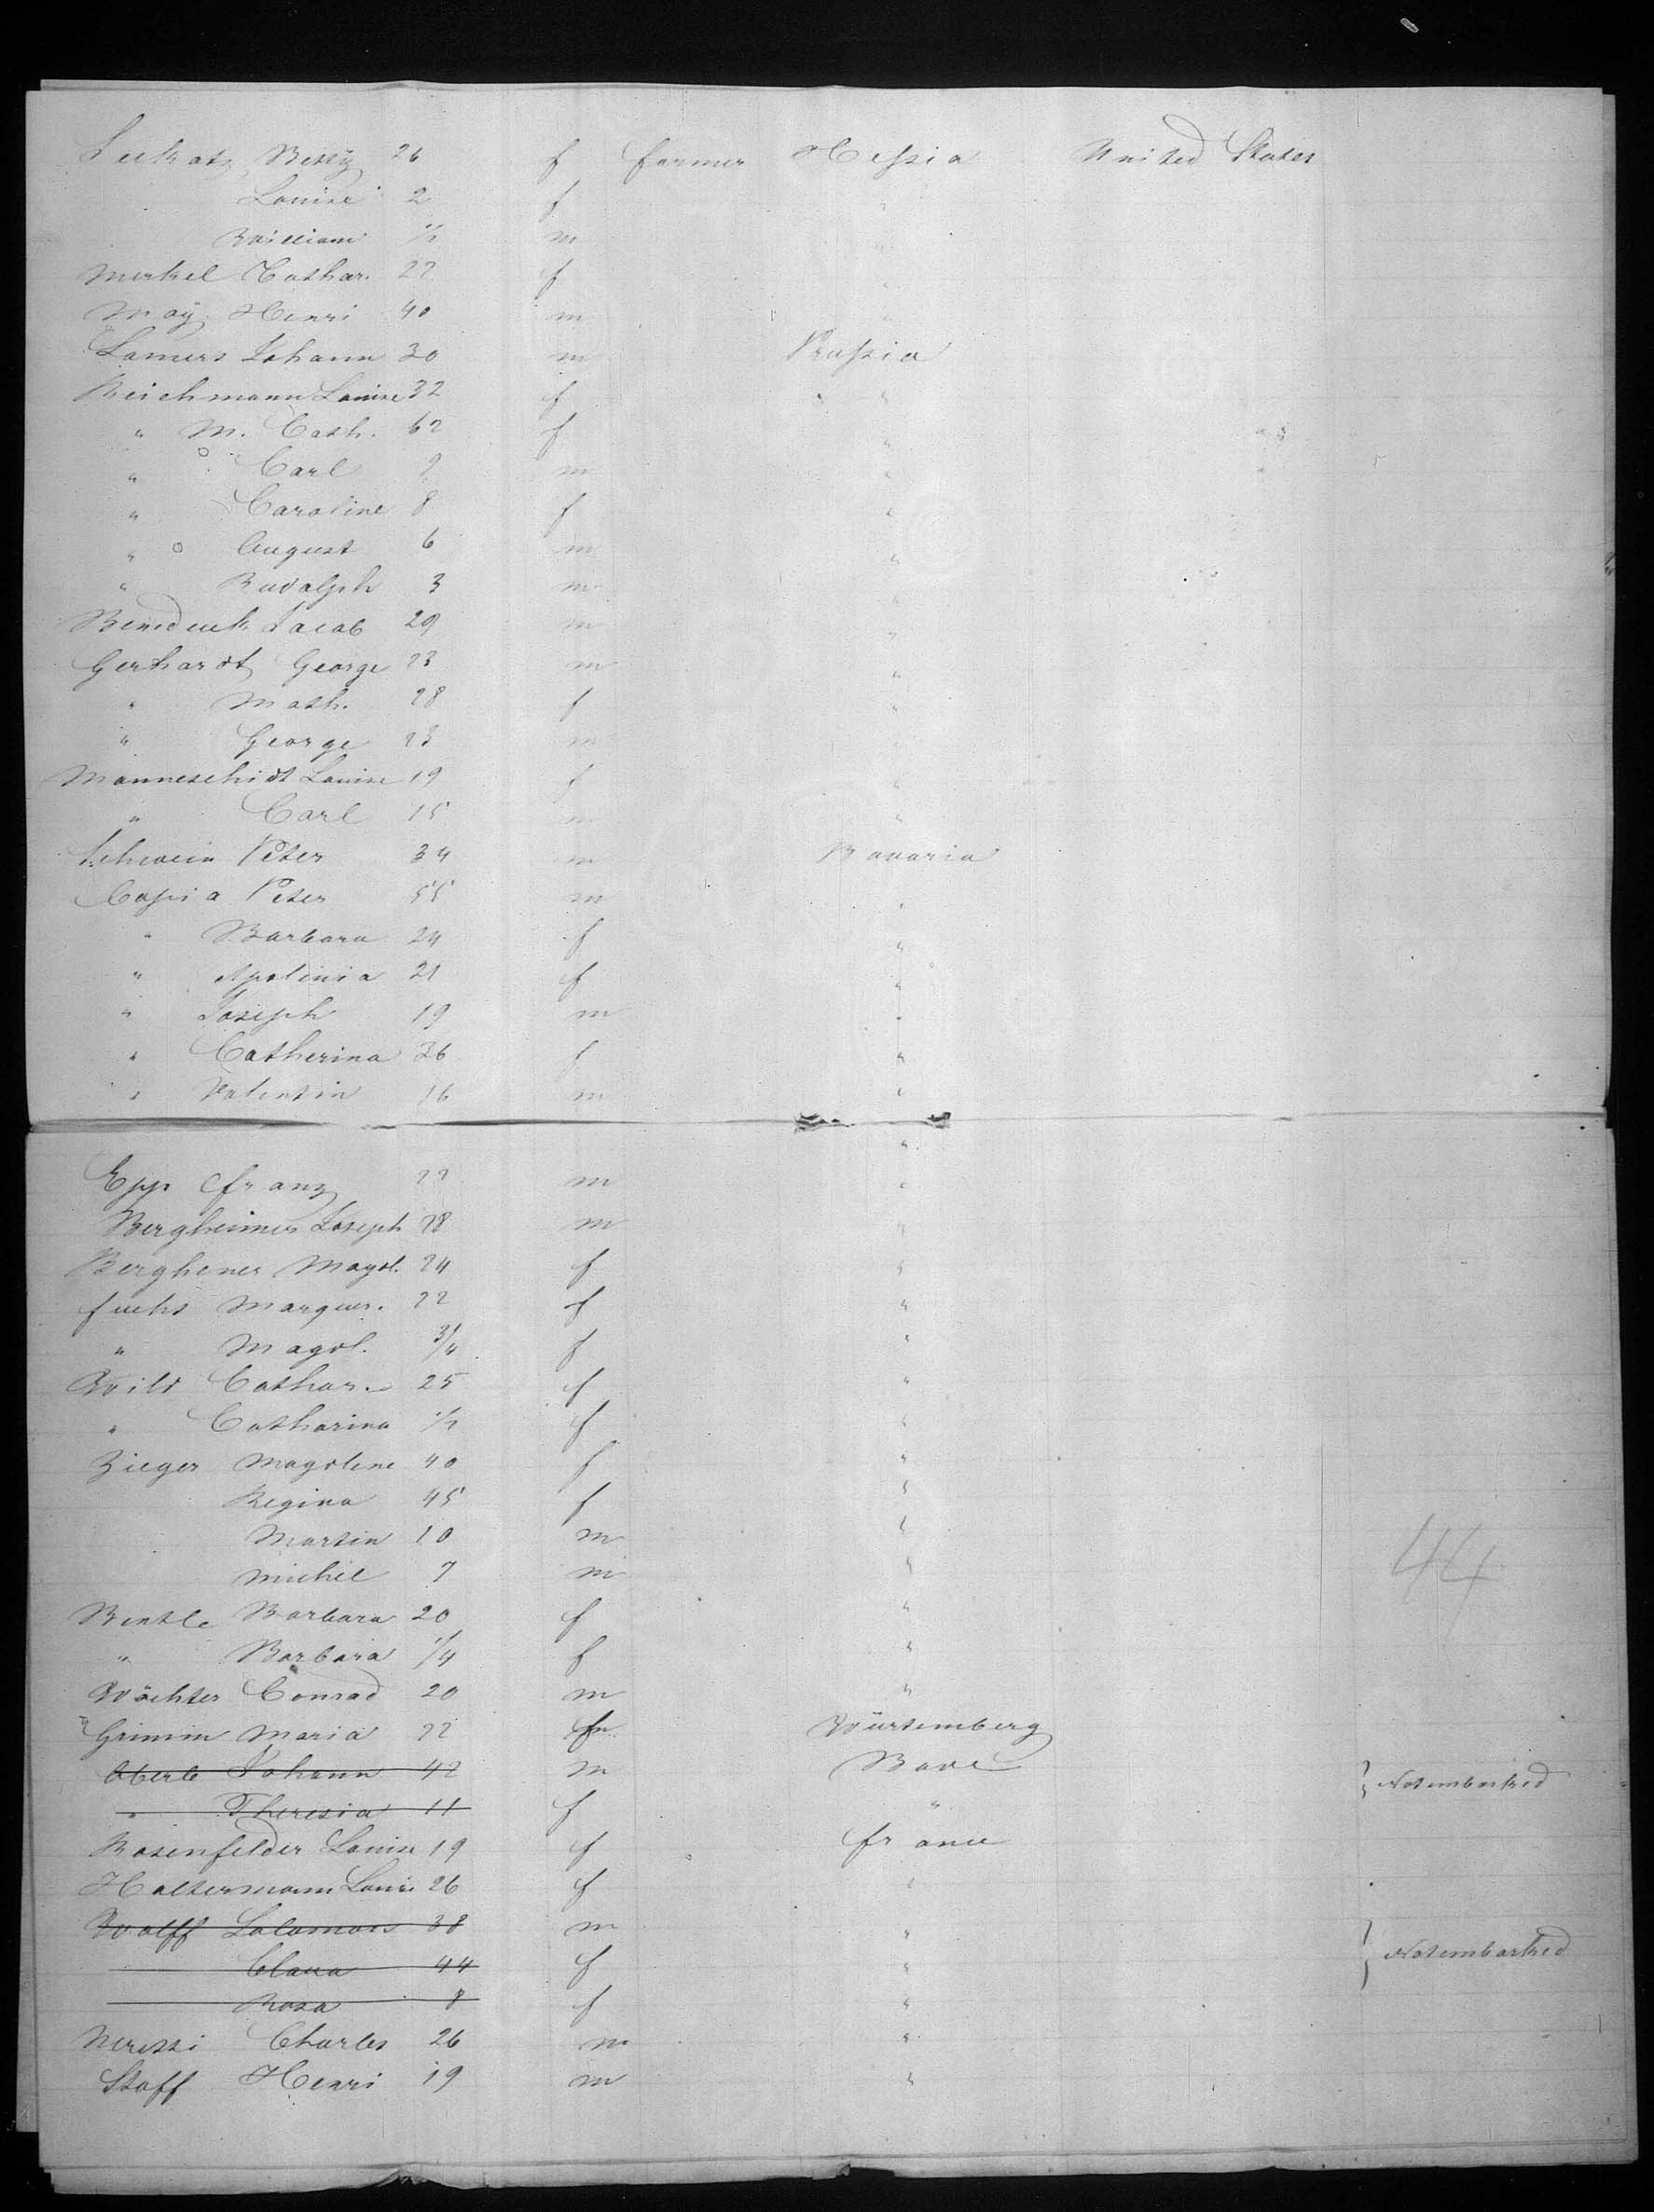 Betty 26 f farmer Hessia United States
Louise 2 f "
William 1/2 m "
Merkel Cathar. 22 f "
May Henri 40 m "
Lamers Johann 30 m Prussia
Reichmann Louise 32 f "
" M. Cath. 62 f "
" Carl 9 m "
" Caroline 8 f "
" August 6 m "
" Rudolph 3 m "
Jacob 29 m "
Gerhardt George 23 m "
" Math. 28 f "
" George 23 m "
Manneschidt Louise 19 f "
" Carl 15 m "
Schwein Peter 34 m Bavaria
Cassia Peter 55 m "
" Barbara 24 f "
" Apolinia 21 f "
" Joseph 19 m "
" Catherina 26 f "
" Valentin 16 m "
"
Epp Franz 22 m "
Bergheimer Joseph 28 m "
Berghener Magd. 24 f "
Fuchs Marguer. 22 f "
" Magd. 3/4 f "
Wild Cathar. 25 f "
" Catharina 1/2 f "
Zieger Magdlene 40 f "
Regina 45 f "
Martin 10 m "
Michel 7 m "
Barbara 20 f "
" Barbara 1/4 f "
Wächter Conrad 20 m "
Grimm Maria 22 Würtemberg
Oberle Johann 42 m Bade Not embarked
" Theresia 11 f "
Rosenfelder Louise 19 f France
Haltermann Louise 26 f "
Wolff Salomon 38 m " Not embarked
Clara 44 f "
Rosa 8 f "
Charles 26 m "
Staff Henri 19 m "
44